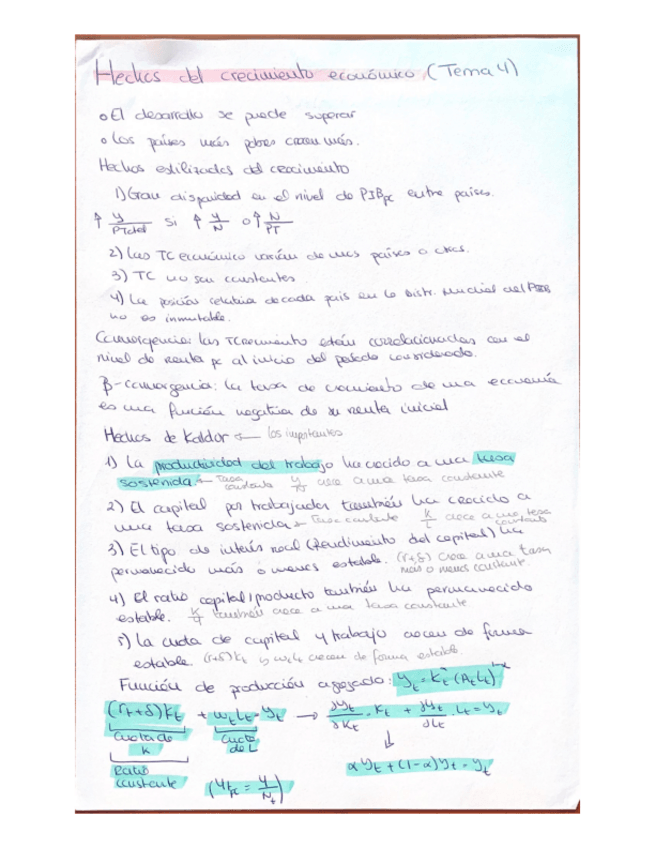 Hechos del crecimiento económico (Tema 4)
o El desarrollo se puede superar
o Los países más pobres crecen más.
Hechos estilizados del crecimiento
1) Gran disparidad en el nivel de PIBpc entre países.
↑ y/PTotal si ↑ y/N o ↑ N/PT
2) Las TC económico varían de unos países a otros.
3) TC no son constantes
4) La posición relativa de cada país en la distr. mundial del
no es inmutable.
Convergencia: las TCrecimiento están correlacionadas con el
nivel de renta pc al inicio del periodo considerado.
β-convergencia: la tasa de crecimiento de una economía
es una función negativa de su renta inicial
Hechos de Kaldor ← los importantes
1) La productividad del trabajo ha crecido a una tasa
sostenida ← Tasa constante crece a una tasa constante
2) El capital por trabajador también ha crecido a
una tasa sostenida ← Tasa constante K/L crece a una tasa constante
3) El tipo de interés real (Rendimiento del capital) ha
permanecido más o menos estable. (r+δ) crece a una tasa más o menos constante.
4) El ratio capital/producto también ha permanecido
estable. K/Y también crece a una tasa constante
5) La cuota de capital y trabajo crecen de forma
estable. (r+δ)Kt y wtLt crecen de forma estable.
Función de producción agregada: yt = Kt^α (AtLt)^1-α
(rt+δ)Kt + wtLt = yt → ∂yt/∂Kt · Kt + ∂yt/∂Lt · Lt = yt
Cuota de K Cuota de L ↓
αyt + (1-α)yt = yt
Ratio constante
(ypc = y/Nt)